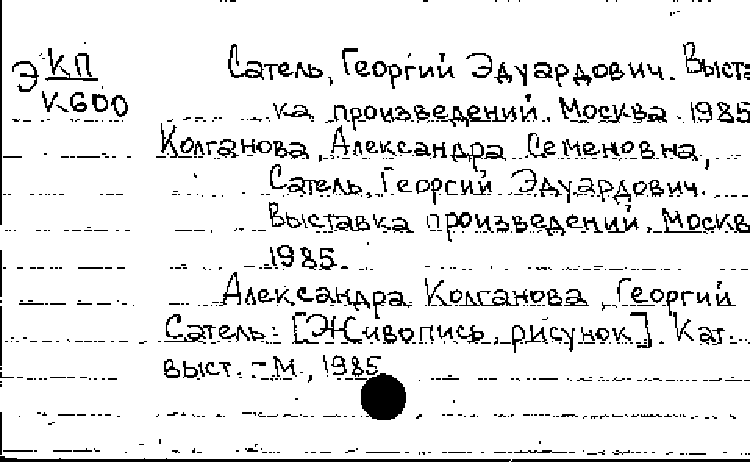 Э КП
К600
Сатель, Георгий Эдуардович. Выста
ка произведений. Москва. 1985
Колганова, Александра Семеновна,
Сатель, Георгий Эдуардович.
Выставка произведений. Москв
1985.
Александра Колганова, Георгий
Сатель: [Живопись, рисунок]. Кат.
выст. - М., 1985